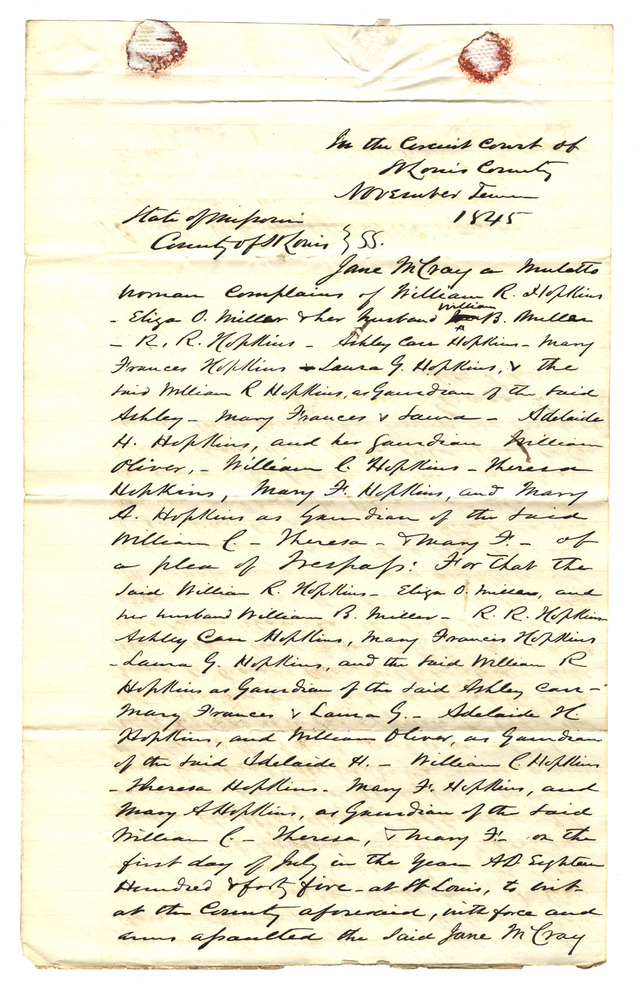 In the Circuit Court of
St Louis County
November Term
1845
State of Missouri
County of St Louis } SS.
Jane McCray a Mulatto
woman Complains of William R. Hopkins
- Eliza O. Miller & her husband William B. Miller
- R. R. Hopkins - Ashley Carr Hopkins - Mary
Frances Hopkins - Laura G. Hopkins, & the
said William R Hopkins, as Gaurdian of the said
Ashley - Mary Frances & Laura - Adelaide
H. Hopkins, and her gaurdian William
Oliver, - William C. Hopkins - Theresa
Hopkins, Mary F. Hopkins, and Mary
A. Hopkins as Gaurdian of the said
William C - Theresa - & Mary F. - of
a plea of Trespass: For that the
said William R. Hopkins - Eliza O. Miller, and
her husband William B. Miller - R. R. Hopkins
Ashley Carr Hopkins, Mary Francis Hopkins
- Laura G. Hopkins, and the said William R
Hopkins as Gaurdian of the said Ashley Carr -
Mary Frances & Laura G. - Adelaide H.
Hopkins, and William Oliver, as Gaurdian
of the said Adelaide H. - William C. Hopkins
- Theresa Hopkins - Mary F. Hopkins, and
Mary A Hopkins, as Gaurdian of the said
William C - Theresa, & Mary F. - on the
first day of July in the Year AD Eighteen
Hundred & forty five - at St Louis, to wit -
at the County aforesaid, with force and
arms assaulted the said Jane McCray